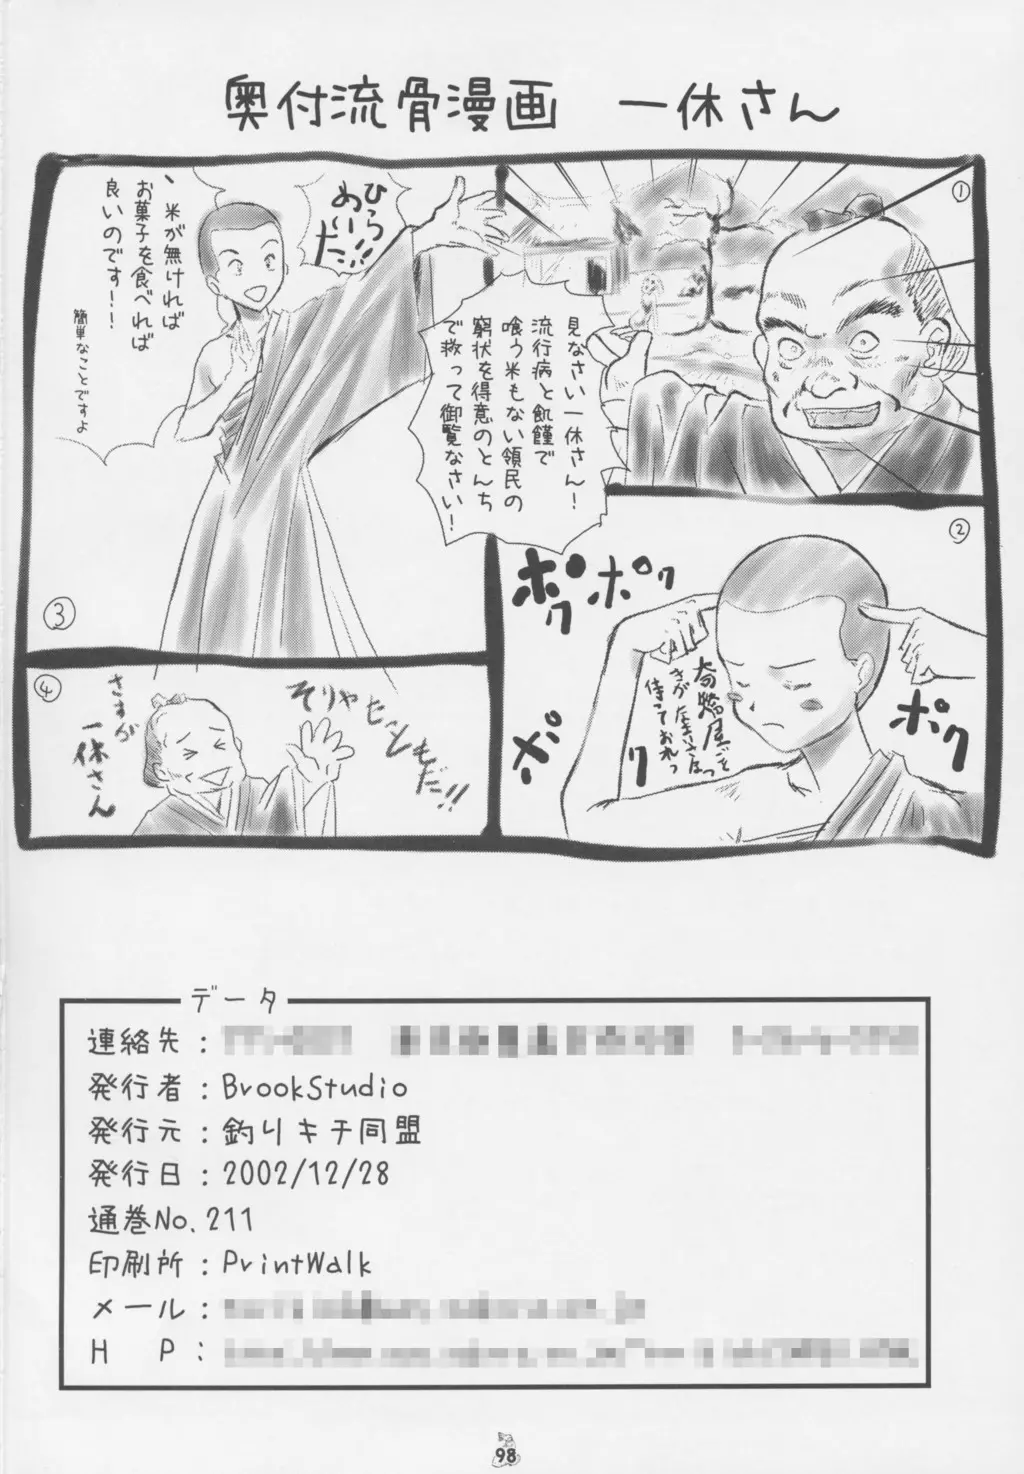 奥付流骨漫画　一休さん
①
見なさい一休さん!
流行病と飢饉で
喰う米もない領民の
窮状を得意のとんち
で救って御覧なさい!
②
ポク
ポク
ポク
ポク
待っておれっ
③
ひらっ
めいた!!
米が無ければ
お菓子を食べれば
良いのです!!
簡単なことですよ
④
そりゃヒントもだ!!
さすが
一休さん
データ
連絡先:
発行者:BrookStudio
発行元:釣りキチ同盟
発行日:2002/12/28
通巻No.211
印刷所:PrintWalk
メール:
H　P:
98